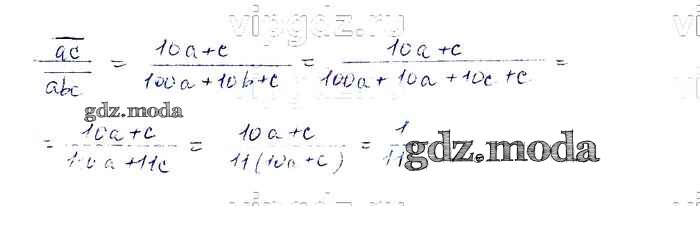 vipgdz.ru
ac / abc = 10a+c / 100a+10b+c = 10a+c / 100a+10a+10c+c =
gdz.moda
= 10a+c / 11(10a+c) =
gdz.moda